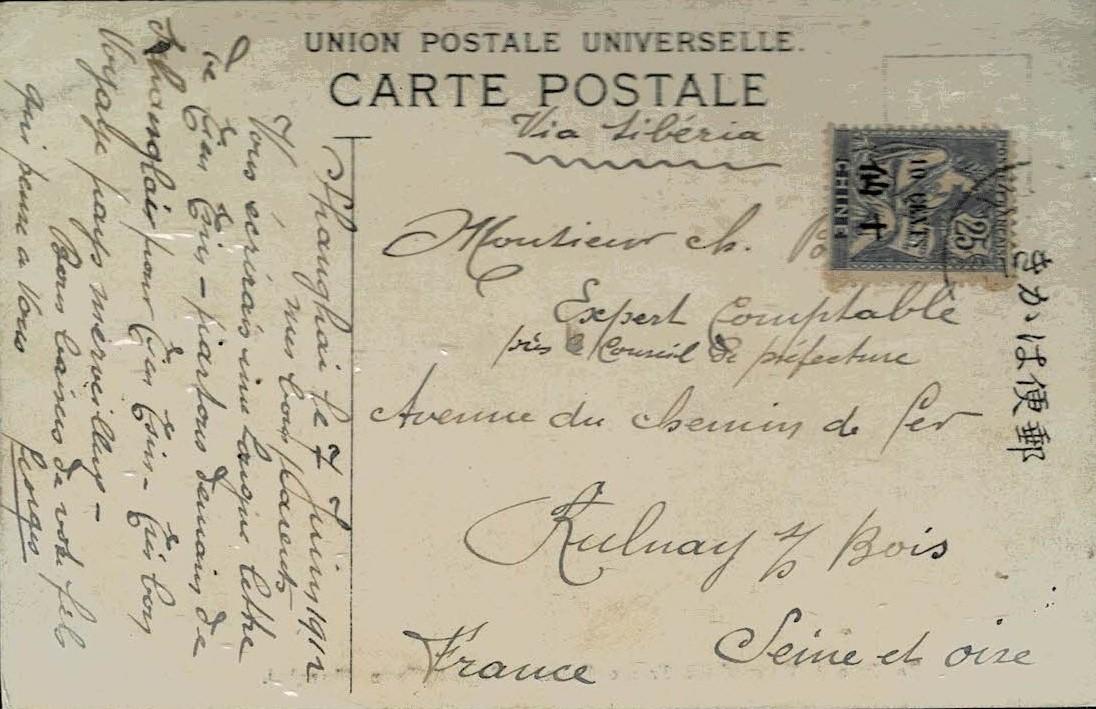 UNION POSTALE UNIVERSELLE.
CARTE POSTALE
Via Sibéria
Monsieur ch. B
Expert Comptable
près le Conseil de préfecture
Avenue du chemin de fer
Aulnay s/ Bois
Seine et oise
France
10 CENTS
CHINE
25
きかは便郵
Shanghai le 7 Juin 1912
mes bons parents
Vous écrirais une longue lettre
de Tien Tsin - partons demain de
Shanghai pour Tien Tsin - très bon
Voyage pays merveilleux -
Bons baisers de votre fils
qui pense a Vous